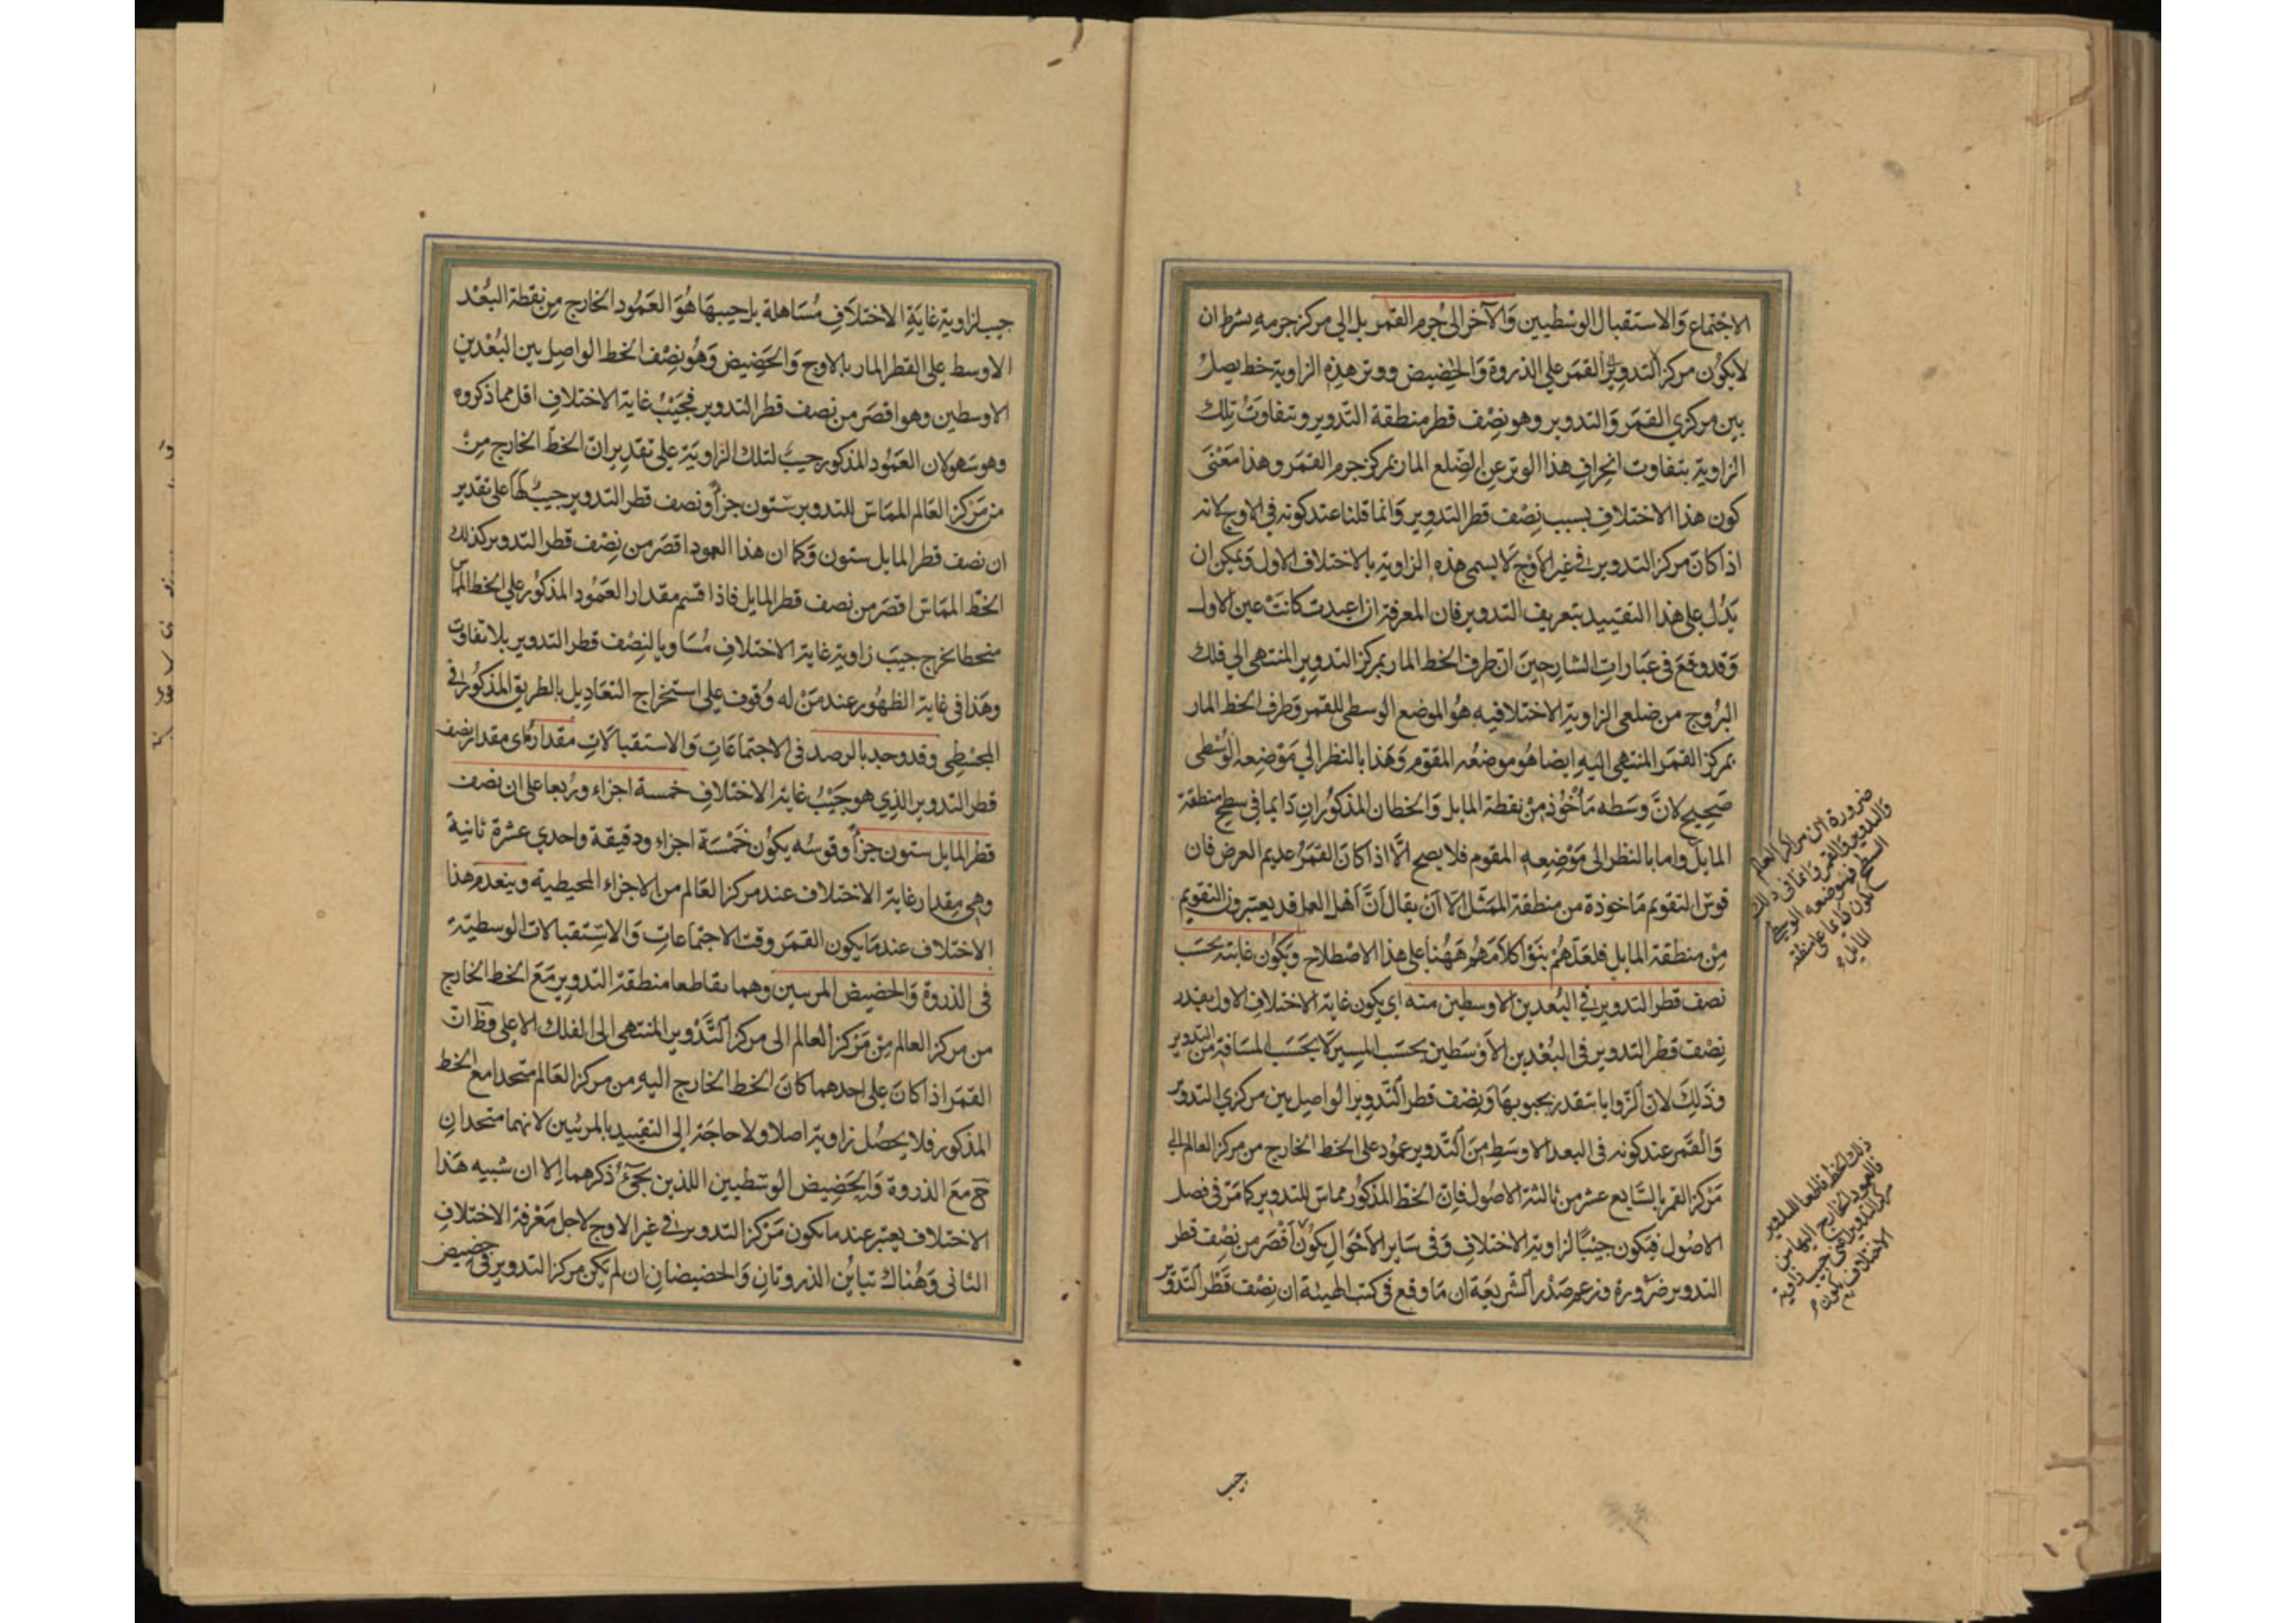 الاجتماع والاستقبال الوسطيين والآخر الى جرم القمر بل الى مركز جرمه بشرط ان
لا يكون مركز القمر على الذروة والحضيض ووتر هذه الزاوية خط يصل
بين مركزي القمر والتدوير وهو نصف قطر منطقة التدوير ويتفاوت تلك
الزاوية بتفاوت انحراف هذا الوتر عن الضلع المار بمركز جرم القمر وهذا معنى
كون هذا الاختلاف بسبب نصف قطر التدوير وانما قلنا عند كونه في الاوج لانه
اذا كان مركز التدوير في غير الاوج لا يسمى هذه الزاوية بالاختلاف الاول ويمكن ان
يدل على هذا التقييد بتعريف التدوير فان المعرفة اذا اعيدت كانت عين الاول
وقد وقع في عبارات الشارحين ان طرف الخط المار بمركز التدوير المنتهى الى فلك
البروج من ضلعى الزاوية الاختلافيه هو الموضع الوسطى للقمر وطرف الخط المار
بمركز القمر المنتهى اليه ايضا هو موضعه المقوم وهذا بالنظر الى موضعه الوسطى
صحيح لان وسطه مأخوذ من نقطة المايل والخطان المذكوران دايما في سطح منطقة
المايل واما بالنظر الى موضعه المقوم فلا يصح الا اذا كان القمر عديم العرض فان
قوس التقويم ماخوذة من منطقة الممثل الا ان يقال ان اهل العمل قد يعتبرون التقويم
من منطقة المايل فلعلهم بنوا كلامهم ههنا على هذا الاصطلاح ويكون غايته بحسب
نصف قطر التدوير في البعدين الاوسطين منه اى يكون غاية الاختلاف الاول بقدر
نصف قطر التدوير في البعدين الاوسطين بحسب المسير لا بحسب المسافة من التدوير
وذلك لان الزوايا بتقدر بجيوبها ونصف قطر التدوير الواصل بين مركزي التدوير
والقمر عند كونه في البعد الاوسط من التدوير عمود على الخط الخارج من مركز العالم الى
مركز القمر بالسابع عشر من ثالثة الاصول فان الخط المذكور مماس للتدوير كما مر في فصل
الاصول فيكون جيبا لزاوية الاختلاف وفي ساير الاحوال يكون اقصر من نصف قطر
التدوير ضرورة وزعم صدر الشريعة ان ما وقع في كتب الهيئة ان نصف قطر التدوير
ضرورة ان مراكز العالم
والتدوير والقمر دائما في ذلك
السطح فموضعه الوسطى
يكون دائما على منطقة
المايل
ذلك الخط قاطعا للتدوير
فالعمود الخارج اليها من
مركز التدوير اعنى جيب زاوية
الاختلاف يكون
جيب
جيب لزاوية غاية الاختلاف مساهلة بل جيبها هو العمود الخارج من نقطة البعد
الاوسط على القطر المار بالاوج والحضيض وهو نصف الخط الواصل بين البعدين
الاوسطين وهو اقصر من نصف قطر التدوير فجيب غاية الاختلاف اقل مما ذكروه
وهو سهو لان العمود المذكور جيب لتلك الزاوية على تقدير ان الخط الخارج من
من مركز العالم المماس للتدوير ستون جزأ ونصف قطر التدوير جيب لها على تقدير
ان نصف قطر المايل ستون وكما ان هذا العمود اقصر من نصف قطر التدوير كذلك
الخط المماس اقصر من نصف قطر المايل فاذا قسم مقدار العمود المذكور على الخط المماس
منحطا يخرج جيب زاوية غاية الاختلاف مساويا لنصف قطر التدوير بلا تفاوت
وهذا في غاية الظهور عند من له وقوف على استخراج التعاديل بالطريق المذكور في
المجسطى وقد وجد بالرصد في الاجتماعات والاستقبالات مقداره اى مقدار نصف
قطر التدوير الذي هو جيب غاية الاختلاف خمسة اجزاء وربعا على ان نصف
قطر المايل ستون جزأ وقوسه يكون خمسة اجزاء ودقيقة واحدى عشرة ثانية
وهى مقدار غاية الاختلاف عند مركز العالم من الاجزاء المحيطية وينعدم هذا
الاختلاف عندما يكون القمر وقت الاجتماعات والاستقبالات الوسطية
في الذروة والحضيض المرييين وهما تقاطعا منطقة التدوير مع الخط الخارج
من مركز العالم من مركز العالم الى مركز التدوير المنتهى الى الفلك الاعلى وظ ان
القمر اذا كان على احدهما كان الخط الخارج اليه من مركز العالم متحدا مع الخط
المذكور فلا يحصل زاوية اصلا ولا حاجة الى التقييد بالمرئيين لانهما متحدان
ح مع الذروة والحضيض الوسطيين اللذين يجئ ذكرهما الا ان شبيه هذا
الاختلاف يعتبر عند ما يكون مركز التدوير في غير الاوج لاجل معرفة الاختلاف
الثانى وهناك تباين الذروتان والحضيضان ان لم يكن مركز التدوير في حضيض